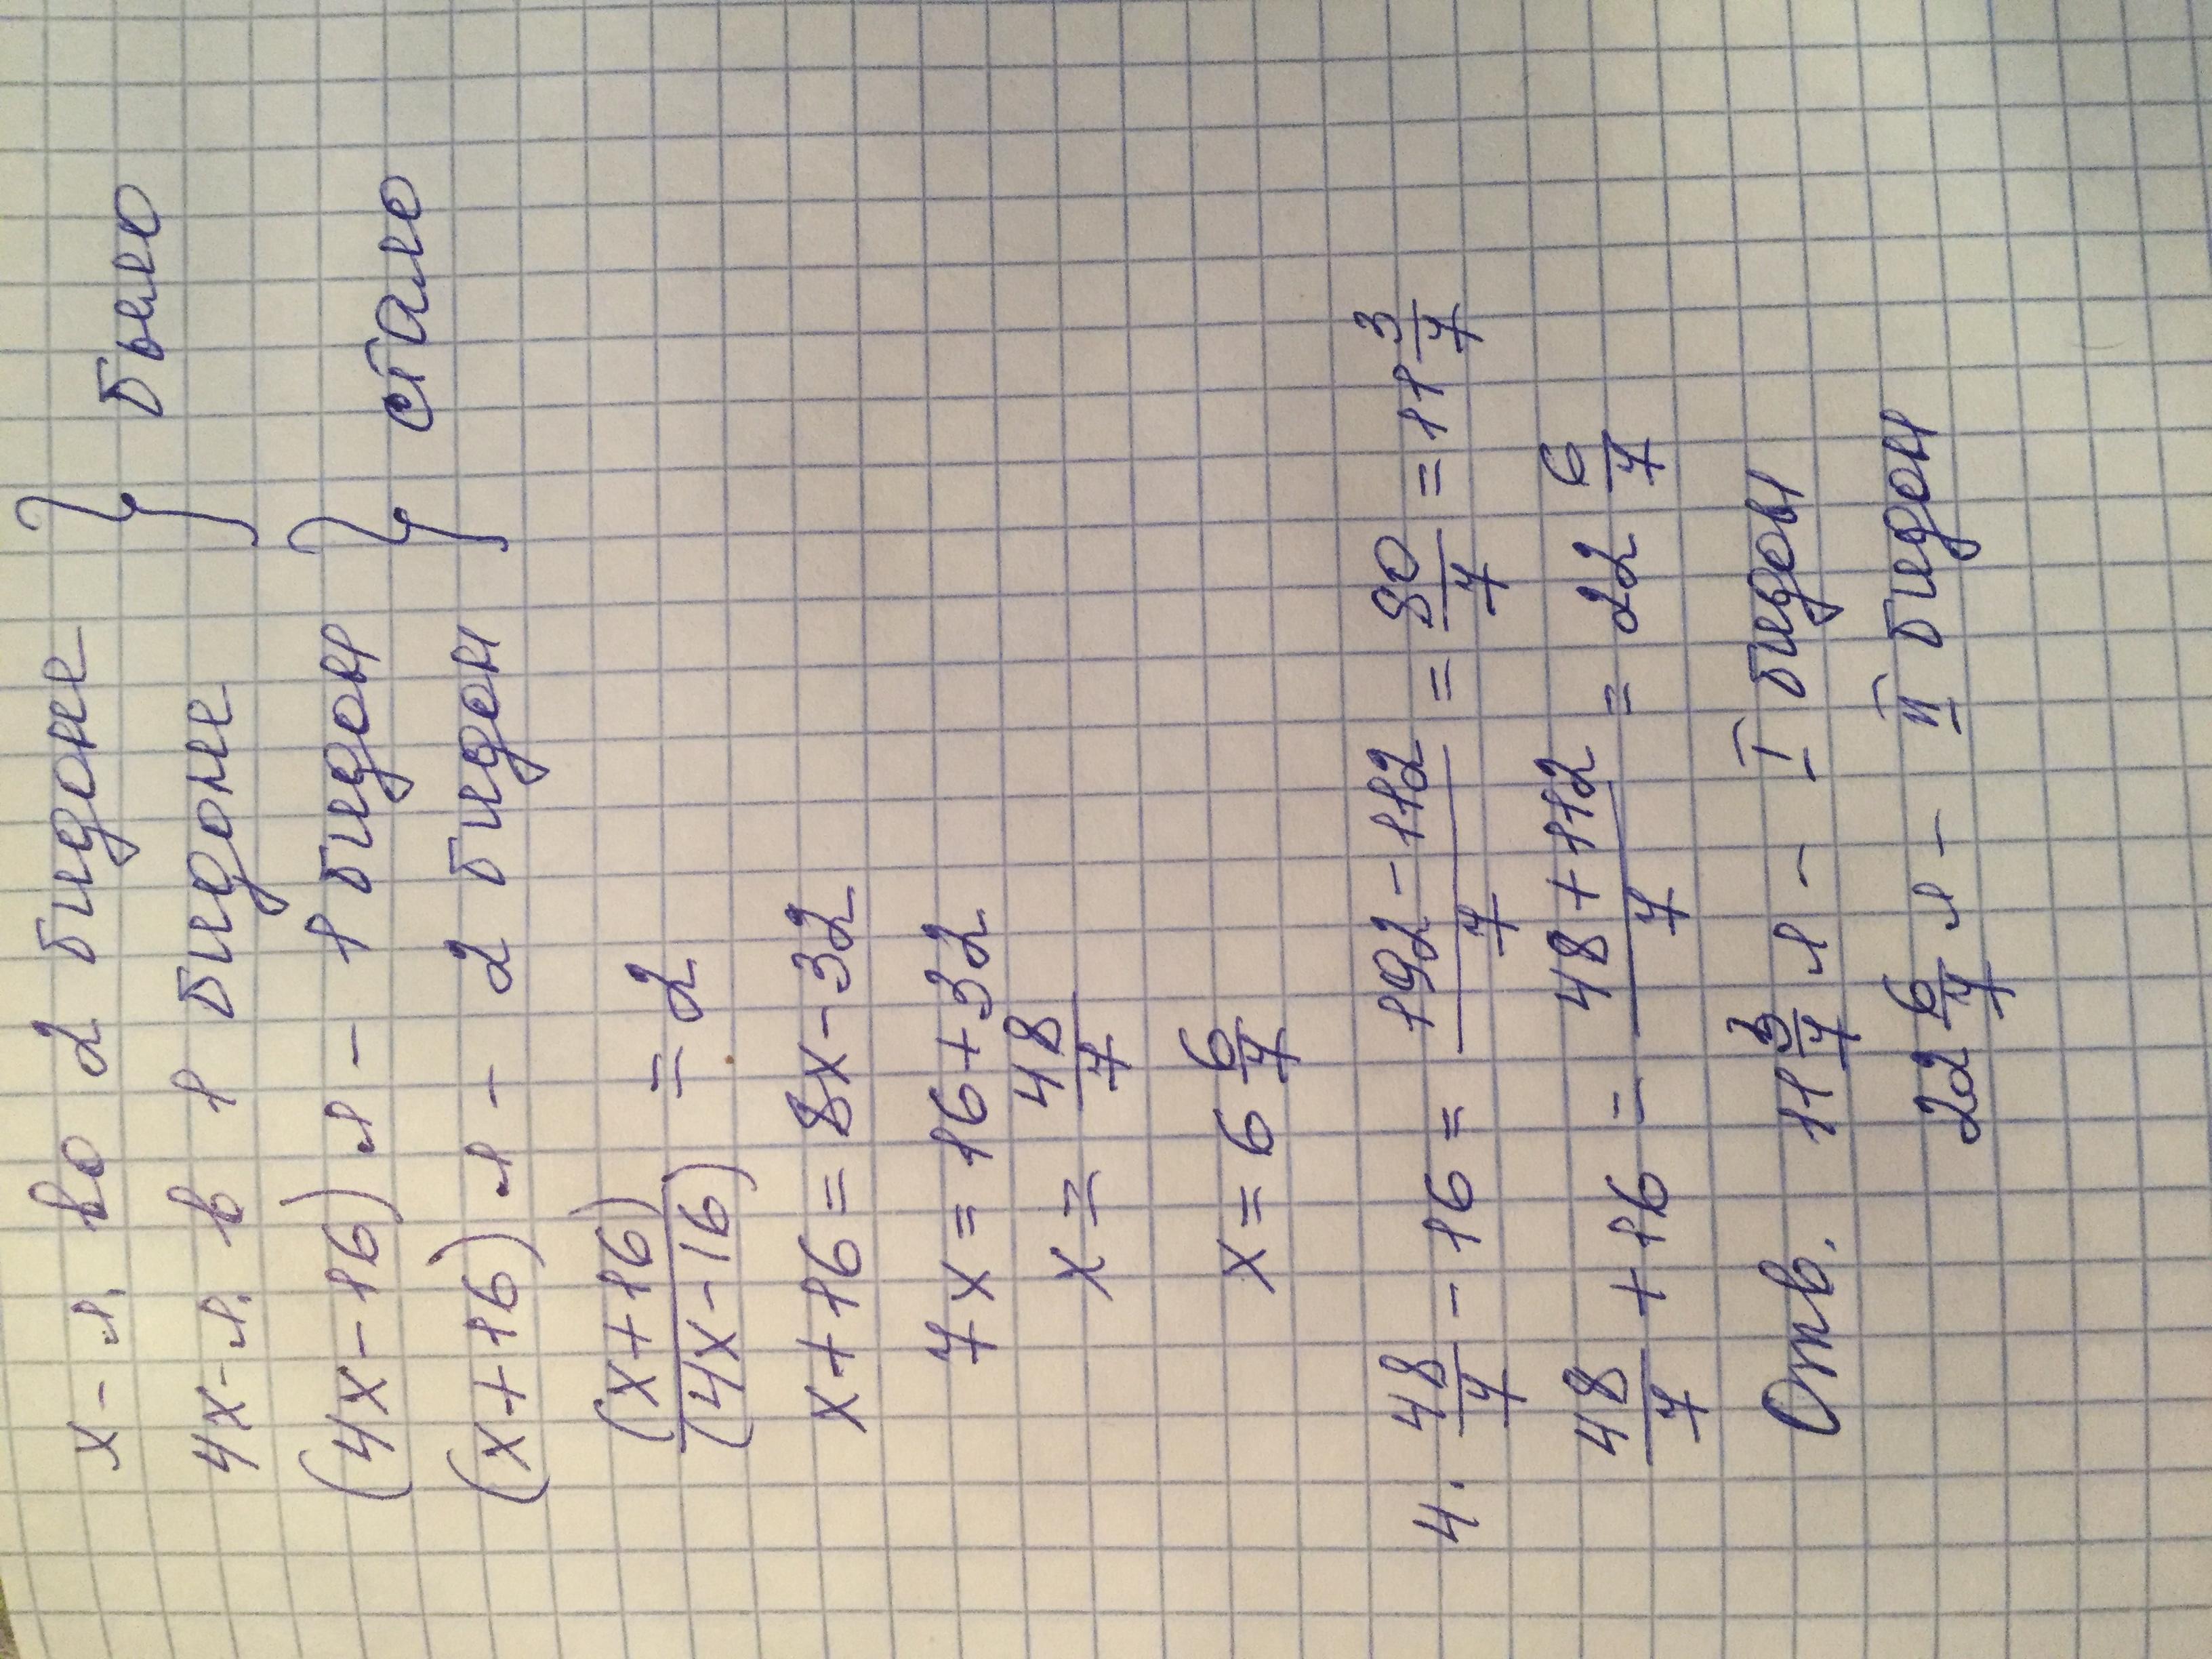 x - л. во 2 бидоне } было
4x - л. в 1 бидоне
(4x - 16) л - 1 бидон } стало
(x + 16) л - 2 бидон
(x + 16) / (4x - 16) = 2
x + 16 = 8x - 32
7x = 16 + 32
x = 48/7
x = 6 6/7
4 · 48/7 - 16 = (192 - 112)/7 = 80/7 = 11 3/7
48/7 + 16 = (48 + 112)/7 = 22 6/7
Отв. 11 3/7 л - I бидон
22 6/7 л - II бидон